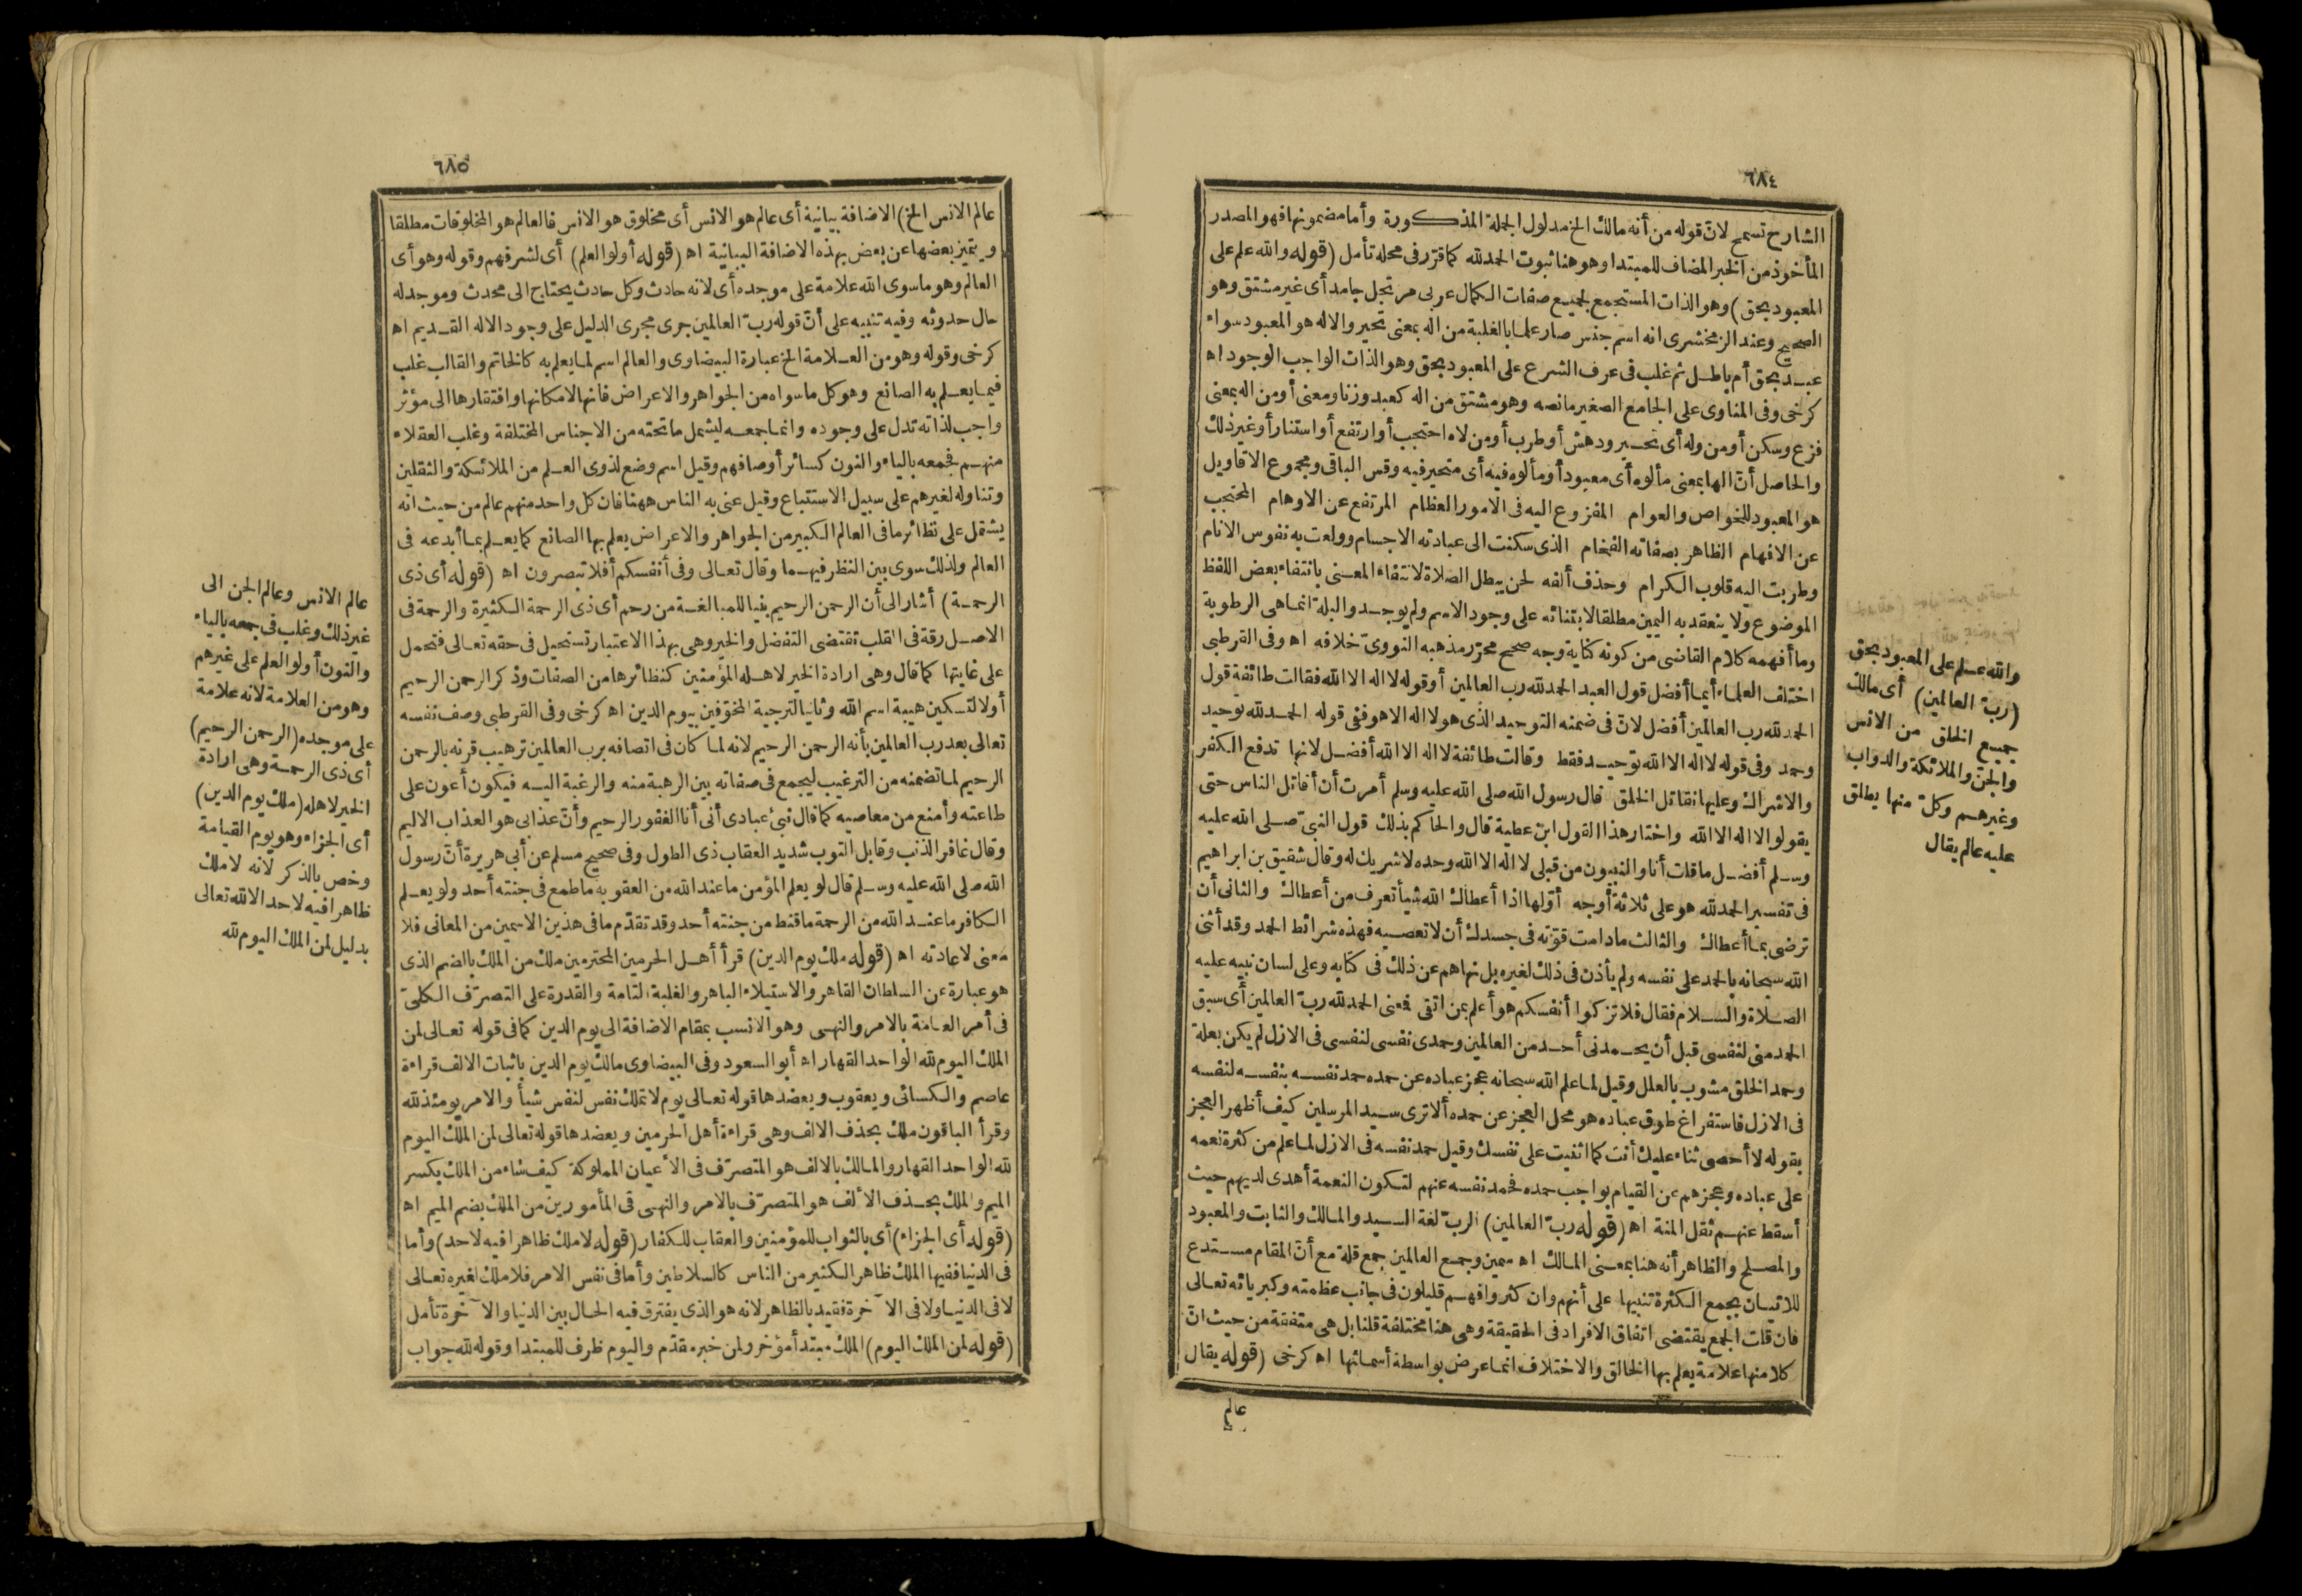 ٦٨٤
الشارح تسمح لان قوله من أنه مالك الخ مدلول الجملة المذكورة وأما مضمونها فهو المصدر
المأخوذ من الخبر المضاف للمبتدا وهو هنا ثبوت الحمد لله كما قرر فى محله تأمل (قوله والله علم على
المعبود بحق) وهو الذات المستجمع لجميع صفات الكمال عربى مرتجل جامد أى غير مشتق وهو
الصحيح وعند الزمخشرى انه اسم جنس صار علما بالغلبة من اله بمعنى تحير والاله هو المعبود سواء
عبد بحق أم باطل ثم غلب فى عرف الشرع على المعبود بحق وهو الذات الواجب الوجود اه
كرخى وفى المناوى على الجامع الصغير مانصه وهو مشتق من اله كعبد وزنا ومعنى أو من اله بمعنى
فزع وسكن أو من وله أى تحير ودهش أو طرب أو من لاه احتجب أو ارتفع أو استنار أو غير ذلك
والحاصل أن الها بمعنى مألوه أى معبود أو مألوه فيه أى متحير فيه وقس الباقى ومجموع الاقاويل
هو المعبود للخواص والعوام المفزوع اليه فى الامور العظام المرتفع عن الاوهام المحتجب
عن الافهام الظاهر بصفاته الفخام الذى سكنت الى عبادته الاجسام وولعت به نفوس الانام
وطربت اليه قلوب الكرام وحذف ألفه لحن يبطل الصلاة لانتفاء المعنى بانتفاء بعض اللفظ
الموضوع ولا ينعقد به اليمين مطلقا لابتنائه على وجود الاسم ولم يوجد والبلة انما هى الرطوبة
وما أفهمه كلام القاضى من كونه كناية وجه صحيح محرر مذهبه النووى خلافه اه وفى القرطبى
اختلف العلماء أيما أفضل قول العبد الحمد لله رب العالمين أو قوله لا اله الا الله فقالت طائفة قول
الحمد لله رب العالمين أفضل لان فى ضمنه التوحيد الذى هو لا اله الا هو ففى قوله الحمد لله توحيد
وحمد وفى قوله لا اله الا الله توحيد فقط وقالت طائفة لا اله الا الله أفضل لانها تدفع الكفر
والاشراك وعليها نقاتل الخلق قال رسول الله صلى الله عليه وسلم أمرت أن أقاتل الناس حتى
يقولوا لا اله الا الله واختار هذا القول ابن عطية قال والحاكم بذلك قول النبى صلى الله عليه
وسلم أفضل ما قلت أنا والنبيون من قبلى لا اله الا الله وحده لا شريك له وقال شقيق بن ابراهيم
فى تفسير الحمد لله هو على ثلاثة أوجه أولها اذا أعطاك الله شيأ تعرف من أعطاك والثانى أن
ترضى بما أعطاك والثالث مادامت قوته فى جسدك أن لا تعصيه فهذه شرائط الحمد وقد أثنى
الله سبحانه بالحمد على نفسه ولم يأذن فى ذلك لغيره بل نهاهم عن ذلك فى كتابه وعلى لسان نبيه عليه
الصلاة والسلام فقال فلا تزكوا أنفسكم هو أعلم بمن اتقى فمعنى الحمد لله رب العالمين أى سبق
الحمد منى لنفسى قبل أن يحمدنى أحد من العالمين وحمدى نفسى لنفسى فى الازل لم يكن بعلة
وحمد الخلق مشوب بالعلل وقيل لما علم الله سبحانه عجز عباده عن حمده حمد نفسه بنفسه لنفسه
فى الازل فاستفراغ طوق عباده هو محل العجز عن حمده ألا ترى سيد المرسلين كيف أظهر العجز
بقوله لا أحصى ثناء عليك أنت كما اثنيت على نفسك وقيل حمد نفسه فى الازل لما علم من كثرة نعمه
على عباده وعجزهم عن القيام بواجب حمده فحمد نفسه عنهم لتكون النعمة أهدى لديهم حيث
أسقط عنهم ثقل المنة اه (قوله رب العالمين) الرب لغة السيد والمالك والثابت والمعبود
والمصلح والظاهر أنه هنا بمعنى المالك اه سمين وجمع العالمين جمع قلة مع أن المقام مستدع
للاتيان بجمع الكثرة تنبيها على أنهم وان كثروا فهم قليلون فى جانب عظمته وكبريائه تعالى
فان قلت الجمع يقتضى اتفاق الافراد فى الحقيقة وهى هنا مختلفة قلنا بل هى متفقة من حيث ان
كلا منها علامة يعلم بها الخالق والاختلاف انما عرض بواسطة أسمائها اه كرخى (قوله يقال
عالم
والله علم على المعبود بحق
(رب العالمين) أى مالك
جميع الخلق من الانس
والجن والملائكة والدواب
وغيرهم وكل منها يطلق
عليه عالم يقال
٦٨٥
عالم الانس الخ) الاضافة بيانية أى عالم هو الانس أى مخلوق هو الانس فالعالم هو المخلوقات مطلقا
ويتميز بعضها عن بعض بهذه الاضافة البيانية اه (قوله أولوا العلم) أى لشرفهم وقوله وهو أى
العالم وهو ما سوى الله علامة على موجده أى لانه حادث وكل حادث يحتاج الى محدث وموجد له
حال حدوثه وفيه تنبيه على أن قوله رب العالمين جرى مجرى الدليل على وجود الاله القديم اه
كرخى وقوله وهو من العلامة الخ عبارة البيضاوى والعالم اسم لما يعلم به كالخاتم والقالب غلب
فيما يعلم به الصانع وهو كل ما سواه من الجواهر والاعراض فانها لامكانها وافتقارها الى مؤثر
واجب لذاته تدل على وجوده وانما جمعه ليشمل ما تحته من الاجناس المختلفة وغلب العقلاء
منهم فجمعه بالياء والنون كسائر أوصافهم وقيل اسم وضع لذوى العلم من الملائكة والثقلين
وتناوله لغيرهم على سبيل الاستتباع وقيل عنى به الناس ههنا فان كل واحد منهم عالم من حيث انه
يشتمل على نظائر ما فى العالم الكبير من الجواهر والاعراض يعلم بها الصانع كما يعلم بما أبدعه فى
العالم ولذلك سوى بين النظر فيهما وقال تعالى وفى أنفسكم أفلا تبصرون اه (قوله أى ذى
الرحمة) أشار الى أن الرحمن الرحيم بنيا للمبالغة من رحم أى ذى الرحمة الكثيرة والرحمة فى
الاصل رقة فى القلب تقتضى التفضل والخير وهى بهذا الاعتبار تستحيل فى حقه تعالى فتحمل
على غايتها كما قال وهى ارادة الخير لاهله المؤمنين كنظائرها من الصفات وذكر الرحمن الرحيم
أولا لتسكين هيبة اسم الله وثانيا لترجية المخوفين بيوم الدين اه كرخى وفى القرطبى وصف نفسه
تعالى بعد رب العالمين بأنه الرحمن الرحيم لانه لما كان فى اتصافه برب العالمين ترهيب قرنه بالرحمن
الرحيم لما تضمنه من الترغيب ليجمع فى صفاته بين الرهبة منه والرغبة اليه فيكون أعون على
طاعته وأمنع من معاصيه كما قال نبئ عبادى أنى أنا الغفور الرحيم وأن عذابى هو العذاب الاليم
وقال غافر الذنب وقابل التوب شديد العقاب ذى الطول وفى صحيح مسلم عن أبى هريرة أن رسول
الله صلى الله عليه وسلم قال لو يعلم المؤمن ما عند الله من العقوبة ما طمع فى جنته أحد ولو يعلم
الكافر ما عند الله من الرحمة ما قنط من جنته أحد وقد تقدم ما فى هذين الاسمين من المعانى فلا
معنى لاعادته اه (قوله ملك يوم الدين) قرأ أهل الحرمين المحترمين ملك من الملك بالضم الذى
هو عبارة عن السلطان القاهر والاستيلاء الباهر والغلبة التامة والقدرة على التصرف الكلى
فى أمر العامة بالامر والنهى وهو الانسب بمقام الاضافة الى يوم الدين كما فى قوله تعالى لمن
الملك اليوم لله الواحد القهار اه أبو السعود وفى البيضاوى مالك يوم الدين باثبات الالف قراءة
عاصم والكسائى ويعقوب ويعضدها قوله تعالى يوم لا تملك نفس لنفس شيأ والامر يومئذ لله
وقرأ الباقون ملك بحذف الالف وهى قراءة أهل الحرمين ويعضدها قوله تعالى لمن الملك اليوم
لله الواحد القهار والمالك بالالف هو المتصرف فى الأعيان المملوكة كيف شاء من الملك بكسر
الميم والملك بحذف الألف هو المتصرف بالامر والنهى فى المأمورين من الملك بضم الميم اه
(قوله أى الجزاء) أى بالثواب للمؤمنين والعقاب للكفار (قوله لا ملك ظاهرا فيه لاحد) وأما
فى الدنيا ففيها الملك ظاهر الكثير من الناس كالسلاطين وأما فى نفس الامر فلا ملك لغيره تعالى
لا فى الدنيا ولا فى الآخرة فقيد بالظاهر لانه هو الذى يفترق فيه الحال بين الدنيا والآخرة تأمل
(قوله لمن الملك اليوم) الملك مبتدأ مؤخر ولمن خبر مقدم واليوم ظرف للمبتدا وقوله لله جواب
عالم الانس وعالم الجن الى
غير ذلك وغلب فى جمعه بالياء
والنون أولو العلم على غيرهم
وهو من العلامة لانه علامة
على موجده (الرحمن الرحيم)
أى ذى الرحمة وهى ارادة
الخير لاهله (ملك يوم الدين)
أى الجزاء وهو يوم القيامة
وخص بالذكر لانه لا ملك
ظاهرا فيه لاحد الا لله تعالى
بدليل لمن الملك اليوم لله